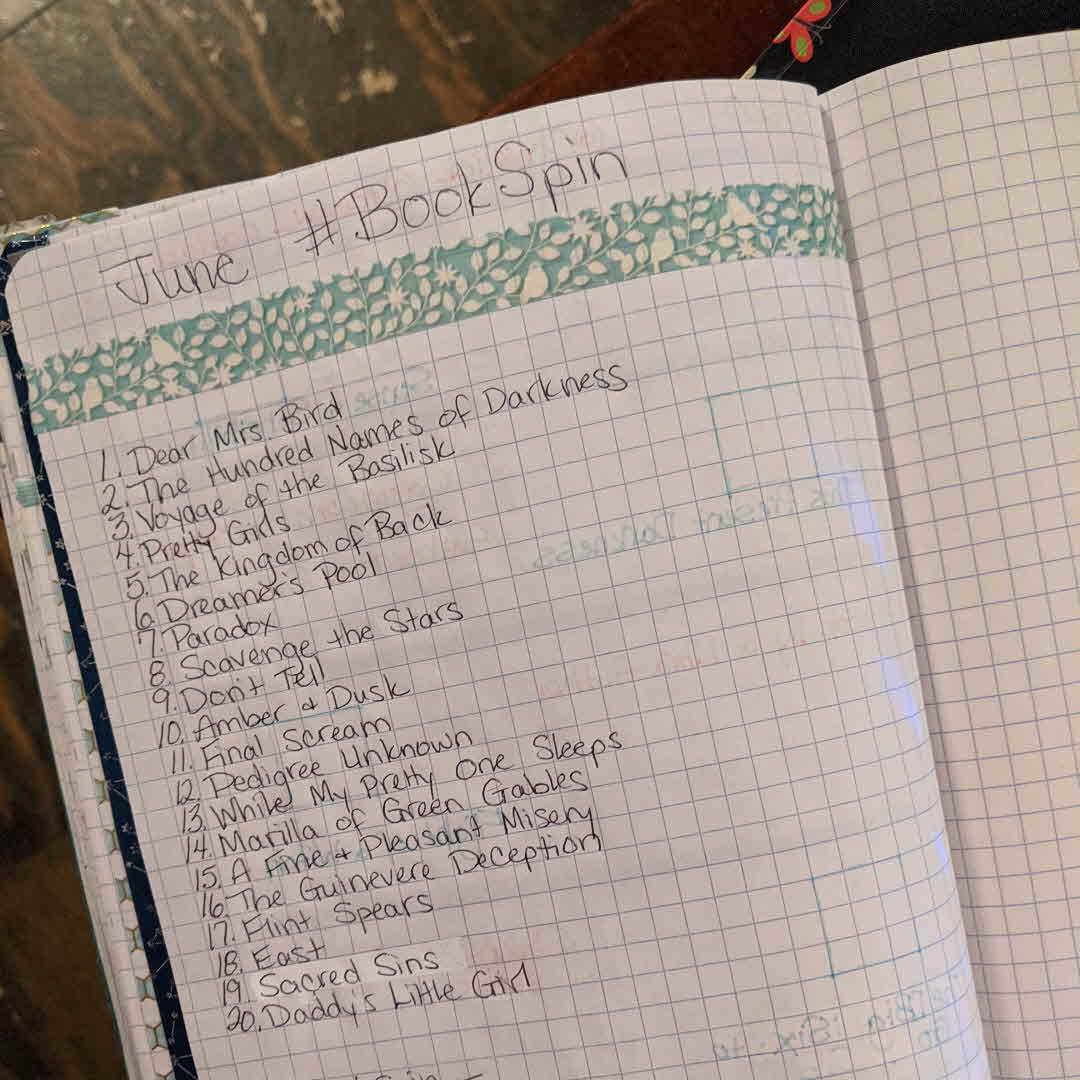 June #BookSpin
1. Dear Mrs. Bird
2. The Hundred Names of Darkness
3. Voyage of the Basilisk
4. Pretty Girls
5. The Kingdom of Back
6. Dreamer's Pool
7. Paradox
8. Scavenge the Stars
9. Don't Tell
10. Amber & Dusk
11. Final Scream
12. Pedigree Unknown
13. While My Pretty One Sleeps
14. Marilla of Green Gables
15. A Fine & Pleasant Misery
16. The Guinevere Deception
17. Flint Spears
18. East
19. Sacred Sins
20. Daddy's Little Girl